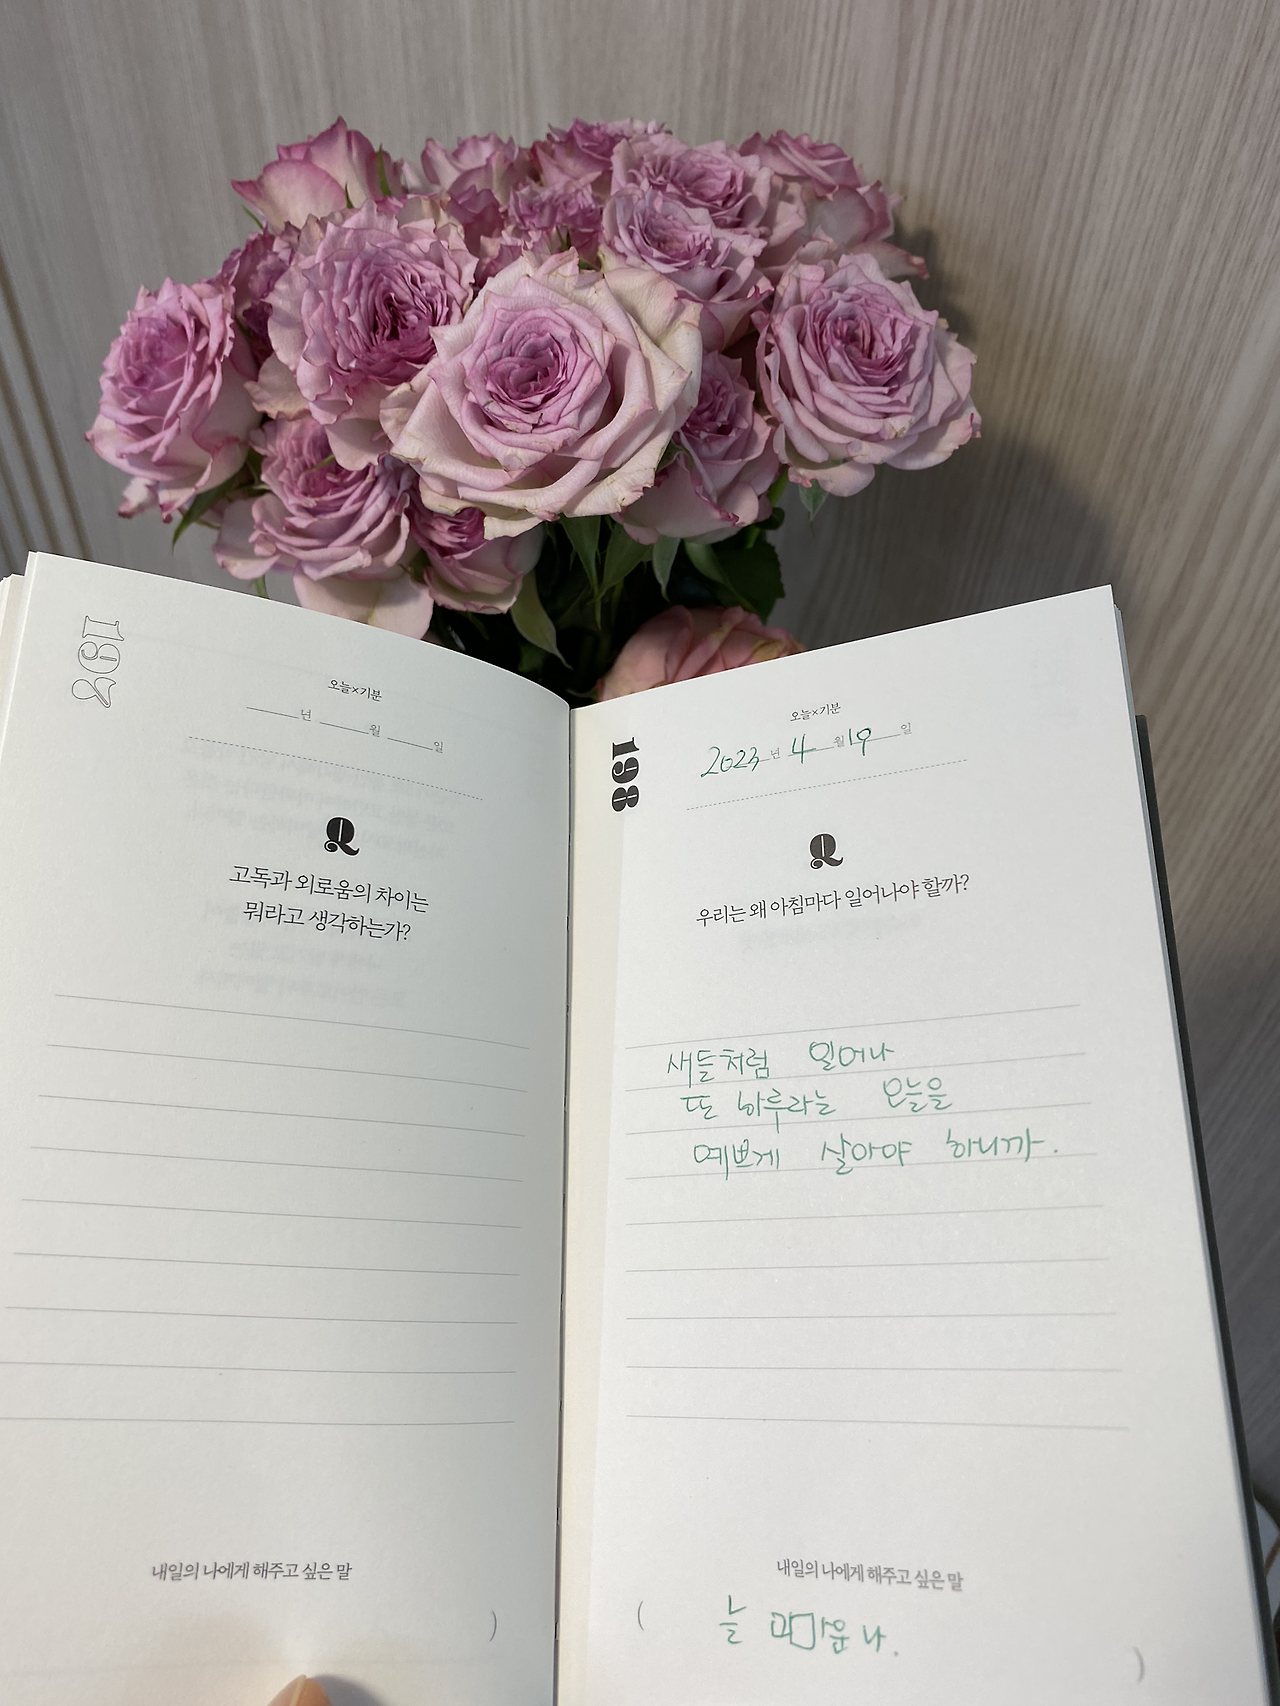 197
오늘×기분
년 월 일
Q
고독과 외로움의 차이는
뭐라고 생각하는가?
내일의 나에게 해주고 싶은 말
)
198
오늘×기분
2023년 4월 19일
Q
우리는 왜 아침마다 일어나야 할까?
새들처럼 일어나
또 하루라는 오늘을
예쁘게 살아야 하니까.
내일의 나에게 해주고 싶은 말
( 늘 고마운 나. )